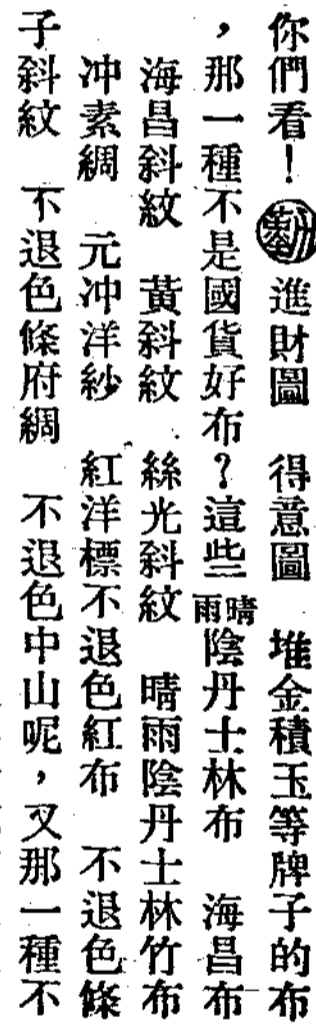 你們看！勤進財圖　得意圖　堆金積玉等牌子的布
，那一種不是國貨好布？這些晴雨陰丹士林布　海昌布
海昌斜紋　黃斜紋　絲光斜紋　晴雨陰丹士林竹布
冲素綢　元冲洋紗　紅洋標不退色紅布　不退色條
子斜紋　不退色條府綢　不退色中山呢，又那一種不